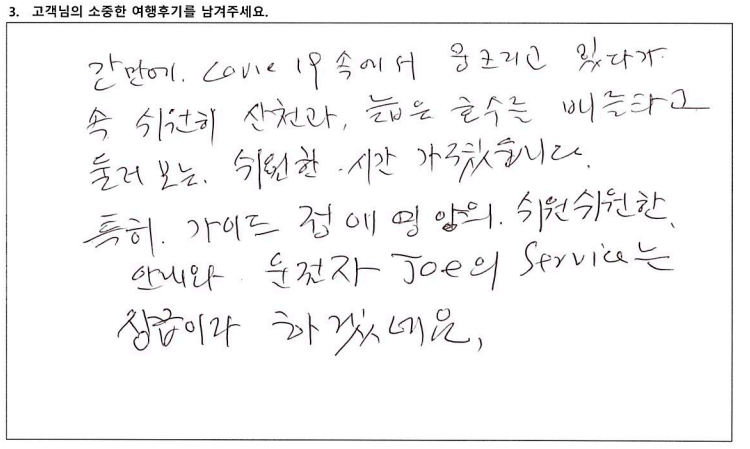 3. 고객님의 소중한 여행후기를 남겨주세요.
간만에. Covie 19 속에서 웅크리고 있다가
속 쉬원히 산천과, 늛은 호수를 배를타고
둘러 보는. 쉬원한 시간 가졌습니다.
특히. 가이드 정애명양의. 쉬원쉬원한,
안내와 운전자 Joe의 Service는
상급이라 하겠네요,